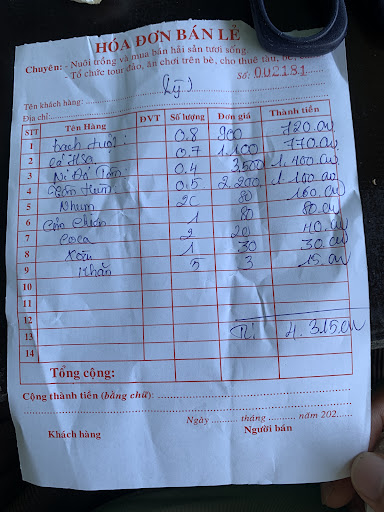 HÓA ĐƠN BÁN LẺ
Chuyên: - Nuôi trồng và mua bán hải sản tươi sống.
- Tổ chức tour đảo, ăn chơi trên bè, cho thuê tàu, bè,
Số: 002181
Tên khách hàng: (Lý)
Địa chỉ:
STT Tên Hàng ĐVT Số lượng Đơn giá Thành tiền
1 bạch tuột: 0.8 900 720.
2 cá 0.7 1.100 770.
3 0.4 3.500 1.400.
4 0.5 2.200 1.100.
5 Nhum 2c 80 160.
6 Cơm Chiên 1 80 80.
7 coca 2 20 40.
8 xoài 1 30 30.
9 Khăn 5 3 15.
10
11
12
13 4.315.
14
Tổng cộng:
Cộng thành tiền (bằng chữ):
Ngày ......... tháng ......... năm 202......
Khách hàng Người bán